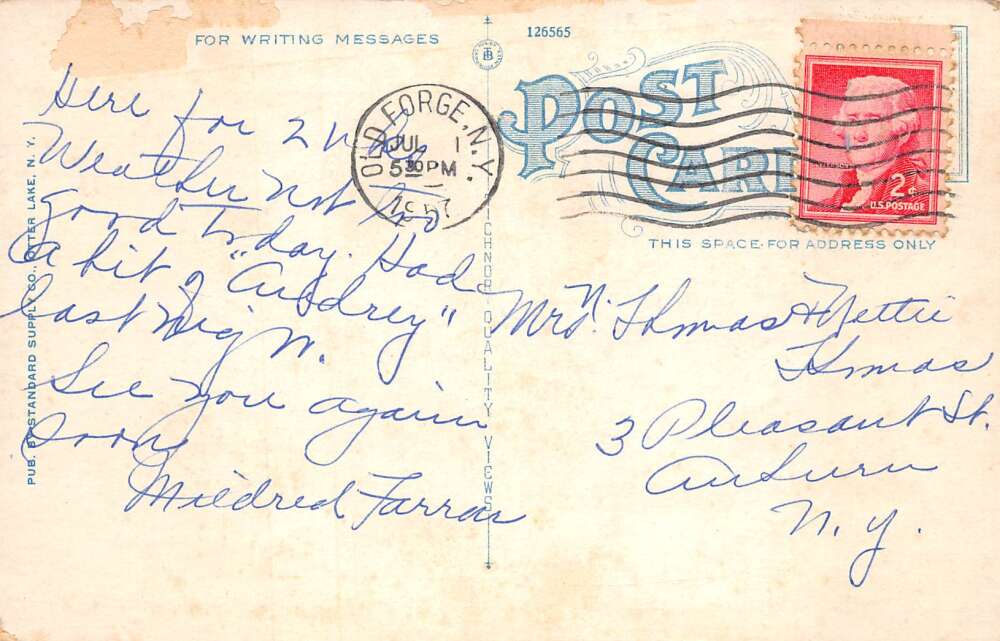 FOR WRITING MESSAGES
126565
POST CARD
THIS SPACE FOR ADDRESS ONLY
OLD FORGE, N.Y.
JUL 1
5 30 PM
2¢
U.S. POSTAGE
Here for 2 wks
Weather not too
good today. Had
a bit of "Audrey"
last night.
See you again
soon
Mildred Farrar
Mrs. Thomas & Nettie
Thomas
3 Pleasant St.
Auburn
N.Y.
PUB. BY STANDARD SUPPLY CO., OTTER LAKE, N. Y.
QUALITY VIEWS